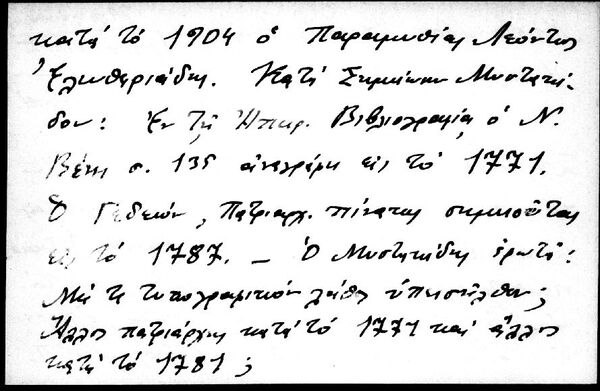 κατὰ τὸ 1904 ὁ Παραμυθίας Λεόντιος
Ἐλευθεριάδης. Κατὰ Σημείωσιν Μυστακί-
δου: Ἐν τῇ Ἠπειρ. Βιβλιογραφίᾳ ὁ Ν.
Βέης σ. 135 ἀναγράφει εἰς τὸ 1771.
Ὁ Γεδεών, Πατριαρχ. πίνακας σημειοῦται
εἰς τὸ 1787. — Ὁ Μυστακίδης ἐρωτᾷ:
Μὴ τι τυπογραφικὸν λάθος ὑπεισῆλθεν;
Ἄλλος πατριάρχης κατὰ τὸ 1771 καὶ ἄλλος
κατὰ τὸ 1781;